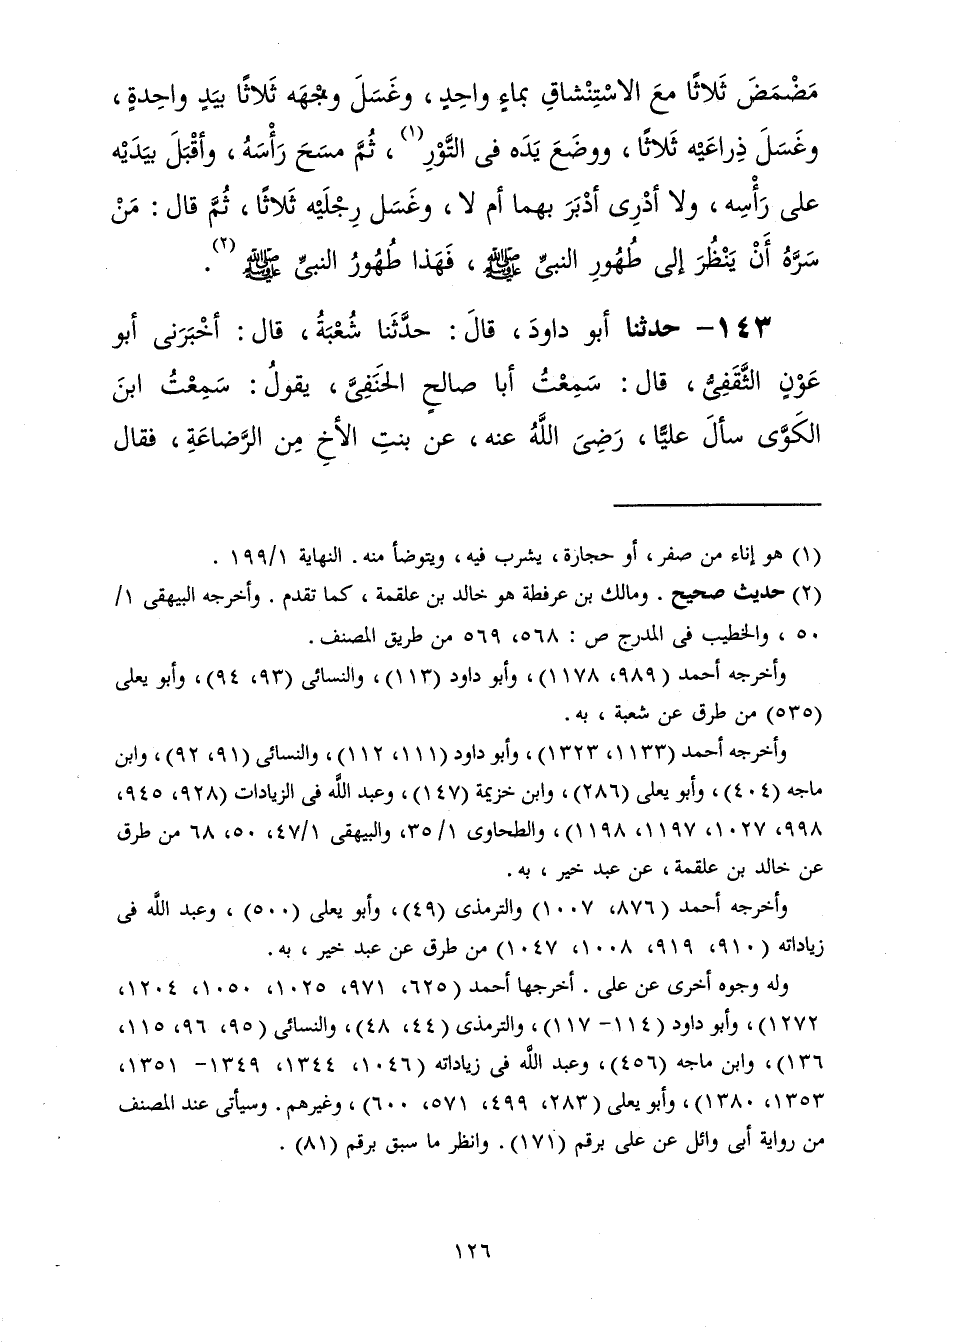 مَضْمَضَ ثَلاثًا معَ الاسْتِنْشاقِ بماءٍ واحِدٍ ، وغَسَلَ وجْهَه ثَلاثًا بيَدٍ واحِدةٍ ،
وغَسَلَ ذِراعَيْه ثَلاثًا ، ووضَعَ يَدَه فى التَّوْرِ(١) ، ثُمَّ مسَحَ رَأْسَهُ ، وأقْبَلَ بيَدَيْه
على رَأْسِه ، ولا أدْرِى أدْبَرَ بهما أم لا ، وغَسَل رِجْلَيْه ثَلاثًا ، ثُمَّ قال : مَنْ
سَرَّهُ أَنْ يَنْظُرَ إلى طُهُورِ النبىِّ ﷺ ، فَهَذا طُهُورُ النبىِّ ﷺ(٢) .
١٤٣- حدثنا أبو داودَ ، قالَ : حدَّثَنا شُعْبَةُ ، قال : أخْبَرَنى أبو
عَوْنٍ الثَّقَفِىُّ ، قال : سَمِعْتُ أبا صالحٍ الحَنَفِىَّ ، يقولُ : سَمِعْتُ ابنَ
الكَوَّى سألَ عليًّا ، رَضِىَ اللَّهُ عنه ، عن بنتِ الأخِ مِن الرَّضاعَةِ ، فقال
(١) هو إناء من صفر ، أو حجارة ، يشرب فيه ، ويتوضأ منه . النهاية ١/١٩٩ .
(٢) حديث صحيح . ومالك بن عرفطة هو خالد بن علقمة ، كما تقدم . وأخرجه البيهقى ١/
٥٠ ، والخطيب فى المدرج ص : ٥٦٨، ٥٦٩ من طريق المصنف .
وأخرجه أحمد (٩٨٩، ١١٧٨) ، وأبو داود (١١٣) ، والنسائى (٩٣، ٩٤) ، وأبو يعلى
(٥٣٥) من طرق عن شعبة ، به .
وأخرجه أحمد (١١٣٣، ١٣٢٣) ، وأبو داود (١١١، ١١٢) ، والنسائى (٩١، ٩٢) ، وابن
ماجه (٤٠٤) ، وأبو يعلى (٢٨٦) ، وابن خزيمة (١٤٧) ، وعبد اللَّه فى الزيادات (٩٢٨، ٩٤٥،
٩٩٨، ١٠٢٧، ١١٩٧، ١١٩٨) ، والطحاوى ١/٣٥، والبيهقى ١/٤٧، ٥٠، ٦٨ من طرق
عن خالد بن علقمة ، عن عبد خير ، به .
وأخرجه أحمد (٨٧٦، ١٠٠٧) والترمذى (٤٩) ، وأبو يعلى (٥٠٠) ، وعبد اللَّه فى
زياداته (٩١٠، ٩١٩، ١٠٠٨، ١٠٤٧) من طرق عن عبد خير ، به .
وله وجوه أخرى عن على . أخرجها أحمد (٦٢٥، ٩٧١، ١٠٢٥، ١٠٥٠، ١٢٠٤،
١٢٧٢) ، وأبو داود (١١٤- ١١٧) ، والترمذى (٤٤، ٤٨) ، والنسائى (٩٥، ٩٦، ١١٥،
١٣٦) ، وابن ماجه (٤٥٦) ، وعبد اللَّه فى زياداته (١٠٤٦، ١٣٤٤، ١٣٤٩- ١٣٥١،
١٣٥٣، ١٣٨٠) ، وأبو يعلى (٢٨٣، ٤٩٩، ٥٧١، ٦٠٠) ، وغيرهم . وسيأتى عند المصنف
من رواية أبى وائل عن على برقم (١٧١) . وانظر ما سبق برقم (٨١) .
١٢٦